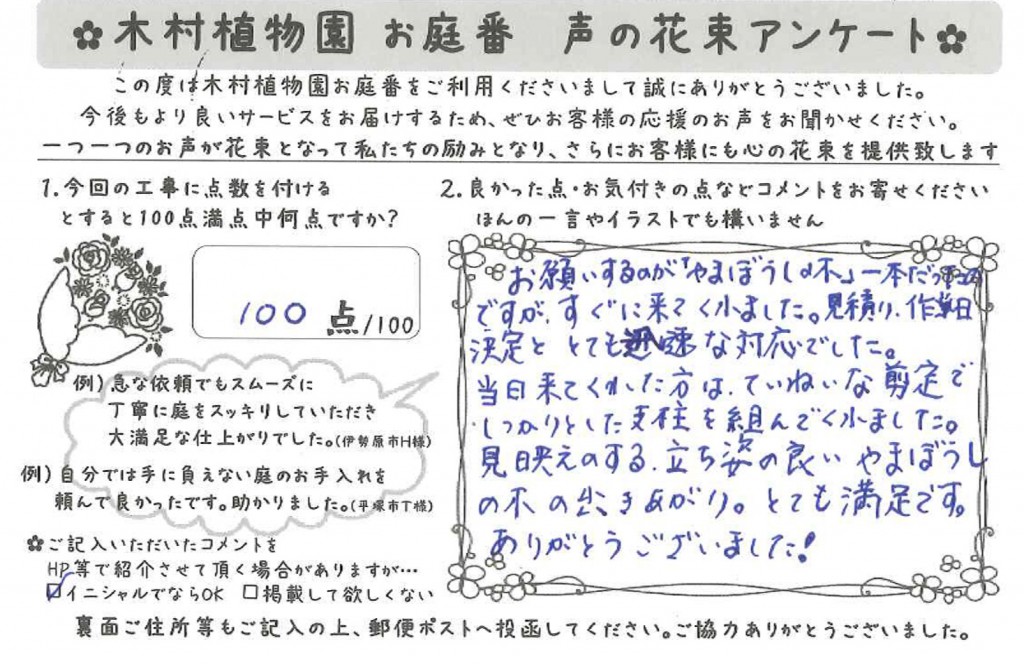 ✿木村植物園 お庭番 声の花束アンケート✿
この度は木村植物園お庭番をご利用くださいまして誠にありがとうございました。
今後もより良いサービスをお届けするため、ぜひお客様の応援のお声をお聞かせください。
一つ一つのお声が花束となって私たちの励みとなり、さらにお客様にも心の花束を提供致します
1.今回の工事に点数を付ける
とすると100点満点中何点ですか?
100 点/100
例)急な依頼でもスムーズに
丁寧に庭をスッキリしていただき
大満足な仕上がりでした。(伊勢原市H様)
例)自分では手に負えない庭のお手入れを
頼んで良かったです。助かりました。(平塚市T様)
✿ご記入いただいたコメントを
HP等で紹介させて頂く場合がありますが…
☑イニシャルでならOK □掲載して欲しくない
2.良かった点・お気付きの点などコメントをお寄せください
ほんの一言やイラストでも構いません
お願いするのが「やまぼうしの木」一本だったの
ですが、すぐに来てくれました。見積り、作業日
決定と とても迅速な対応でした。
当日来てくれた方は、ていねいな剪定で
しっかりとした支柱を組んでくれました。
見映えのする、立ち姿の良い やまぼうし
の木 の出きあがり。とても満足です。
ありがとうございました!
裏面ご住所等もご記入の上、郵便ポストへ投函してください。ご協力ありがとうございました。